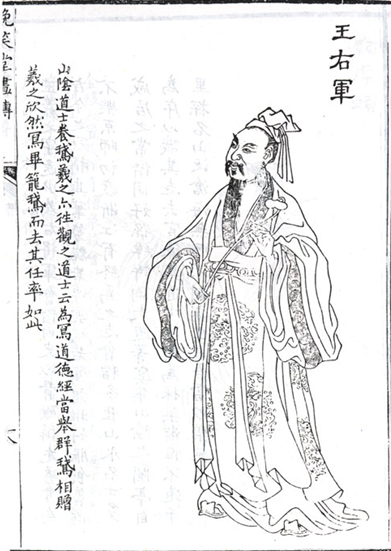 王右軍
山陰道士養鵝羲之亦徃觀之道士云為寫道德經當舉群鵝相贈
羲之欣然寫畢籠鵝而去其任率如此
晚笑堂畫傳